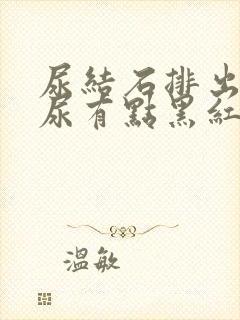 尿結石排出
尿有點黑紅
溫敏